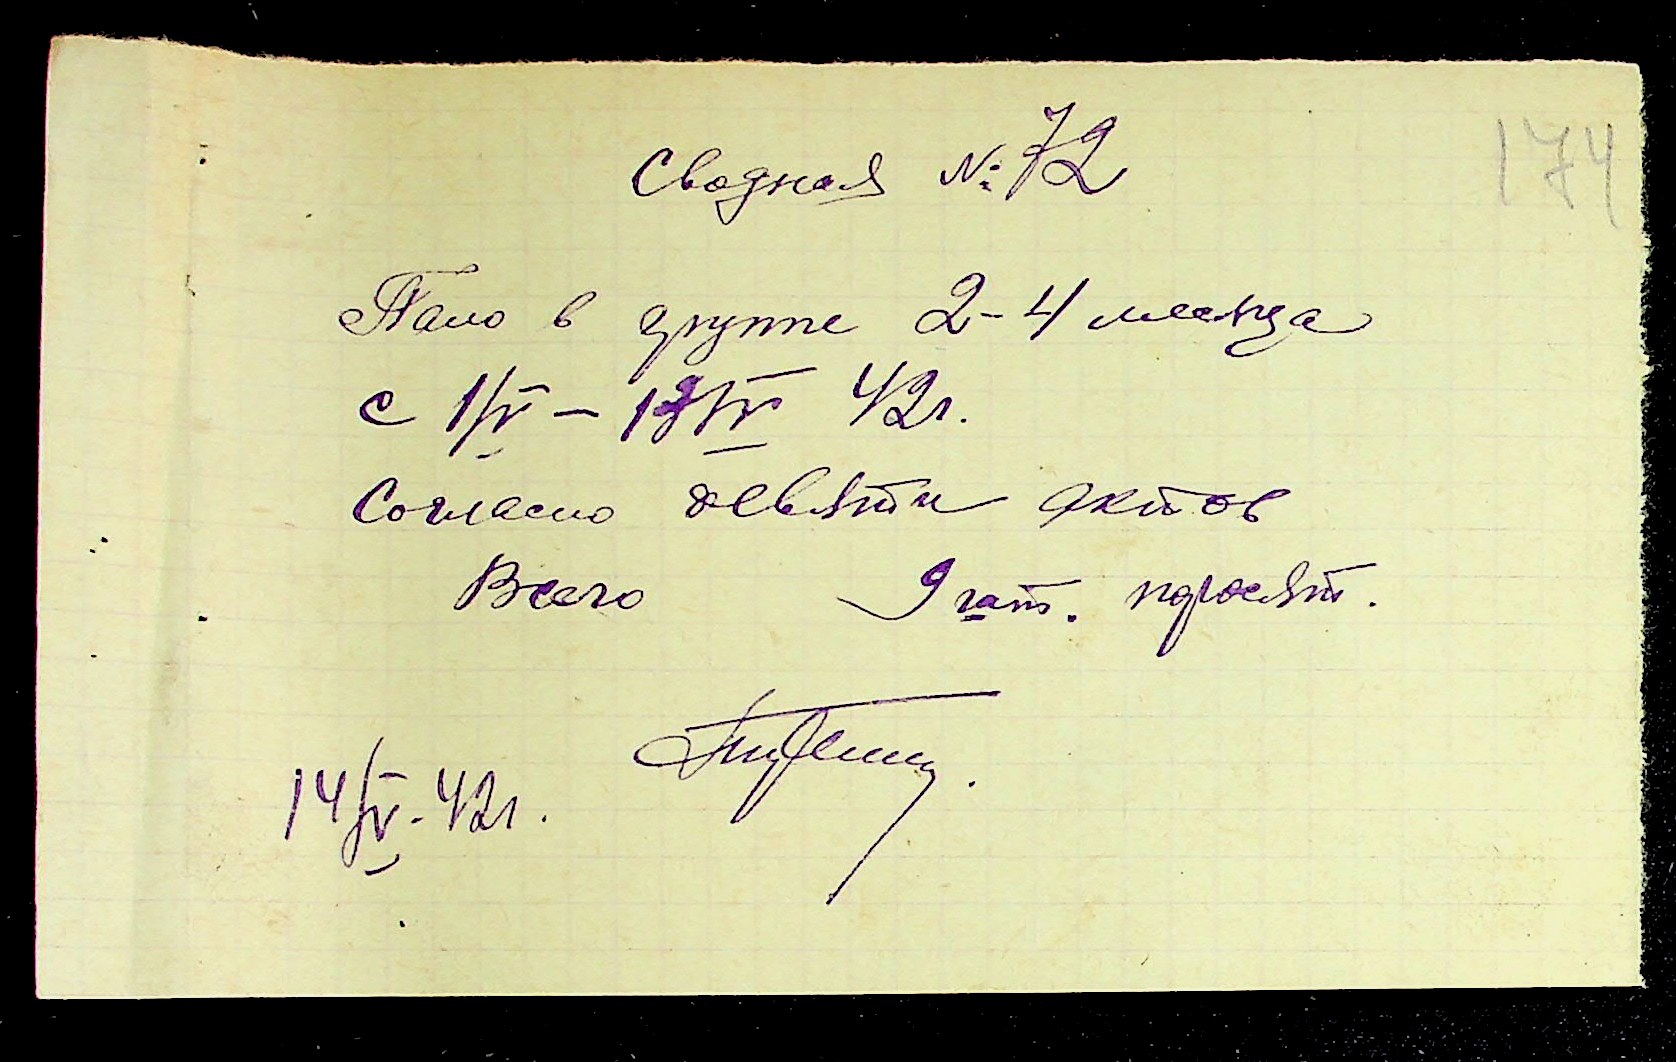 174
Сводная № 72
Пало в группе 2-4 месяца
с 1/V – 13/IV 42г.
Согласно девяти актов
Всего 9 гол. поросят.
14/V-42г.